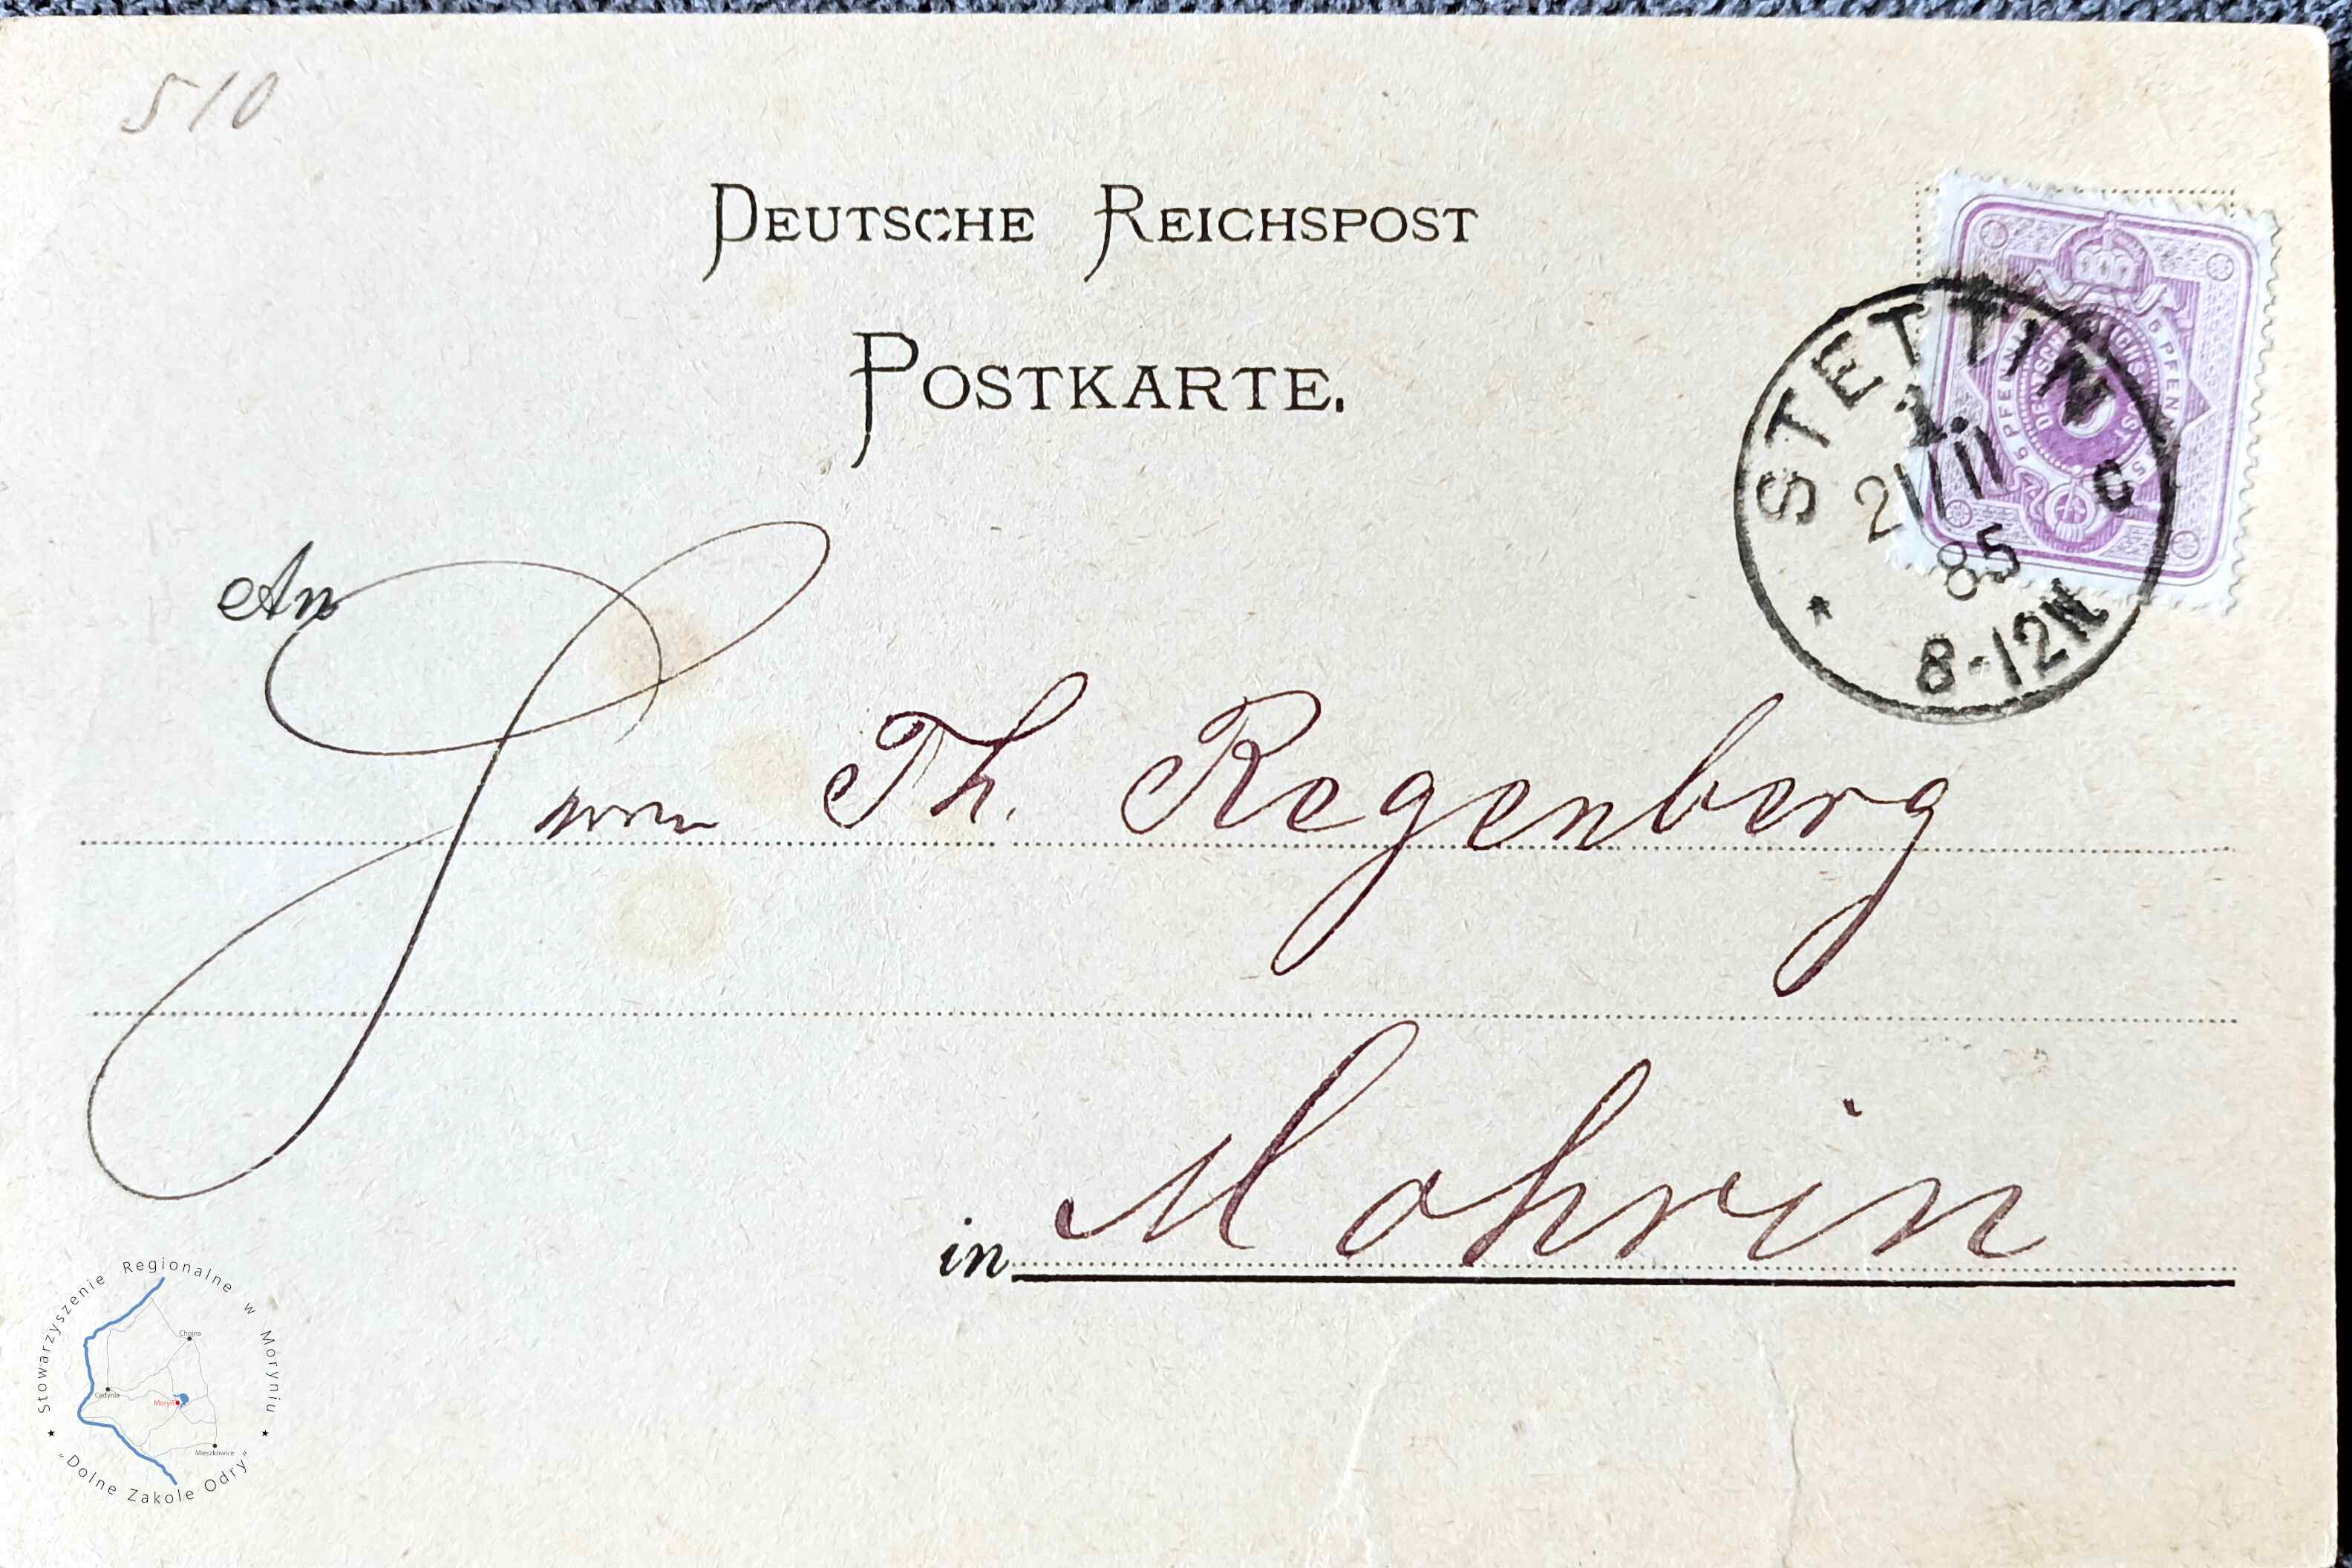 510
DEUTSCHE REICHSPOST
POSTKARTE.
STETTIN
1.
21/11
85
c
* 8-12N
5 PFENNIG
An
Herrn Th. Regenberg
in Mohrin
Stowarzyszenie Regionalne w Moryniu
Chojna
Cedynia
Moryń
Mieszkowice
"Dolne Zakole Odry"